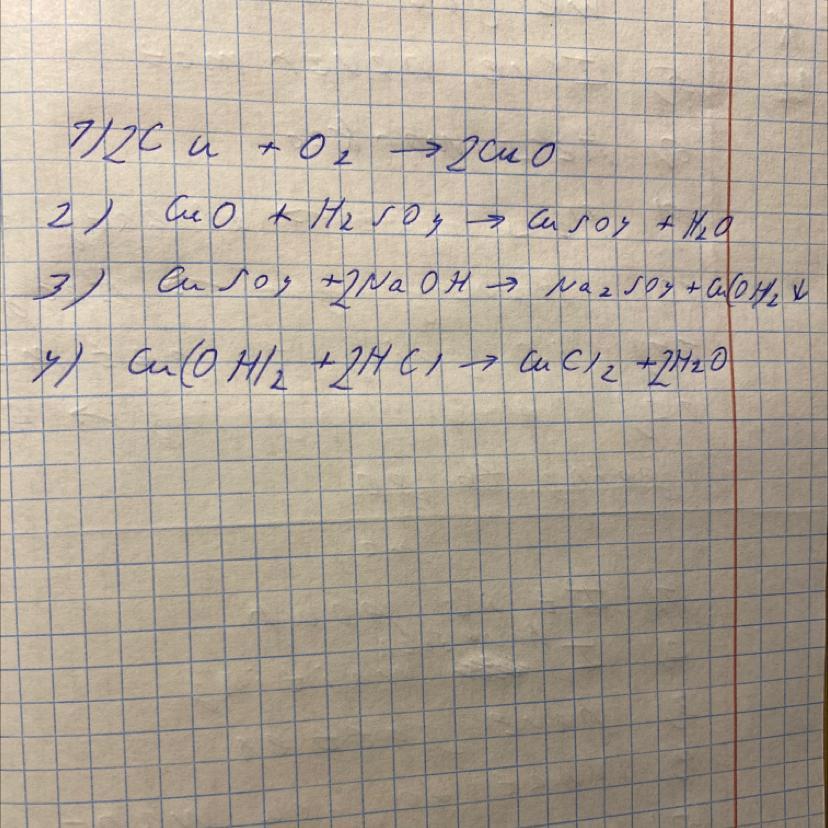 1) 2Cu + O₂ → 2CuO
2) CuO + H₂SO₄ → CuSO₄ + H₂O
3) CuSO₄ + 2NaOH → Na₂SO₄ + Cu(OH)₂ ↓
4) Cu(OH)₂ + 2HCl → CuCl₂ + 2H₂O